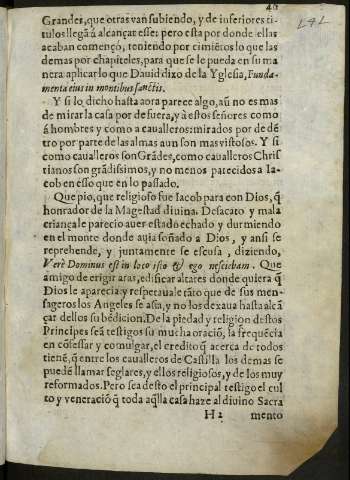 40
Grandes, que otras van subiendo, y de inferiores ti-
tulos llegã á alcançar esse; pero esta por donde ellas
acaban començó, teniendo por cimiẽtos lo que las
demas por chapiteles, para que se le pueda en su ma
nera aplicar lo que Dauid dizo de la Yglesia, Funda-
menta eius in montibus sanctis.
Y si lo dicho hasta aora parece algo, aũ no es mas
de mirar la casa por de fuera, y á estos señores como
á hombres y como a caualleros: mirados por de dẽ
tro por parte de las almas aun son mas vistosos. Y si
como caualleros son Grãdes, como caualleros Chris
tianos son grãdissimos, y no menos parecidos a Ia-
cob en esso que en lo passado.
Que pio, que religioso fue Iacob para con Dios, q̃
honrador de la Magestad diuina. Desacato y mala
criança le parecio auer estado echado y durmiendo
en el monte donde auia soñado a Dios, y ansi se
reprehende, y juntamente se escusa, diziendo,
Verè Dominus est in loco isto & ego nesciebam. Que
amigo de erigir aras, edificar altares donde quiera q̃
Dios le aparecia: y respetauale tãto que de sus men-
sageros los Angeles se asia, y no los dexaua hasta alcã
çar dellos su bẽdicion. De la piedad y religion destos
Principes seã testigos su mucha oraciõ, la frequẽcia
en cõfessar y comulgar, el credito q̃ acerca de todos
tienẽ, q̃ entre los caualleros de Castilla los demas se
puedẽ llamar seglares, y ellos religiosos, y de los muy
reformados. Pero sea desto el principal testigo el cul
to y veneració q̃ toda aq̃lla casa haze al diuino Sacra
H 2 mento